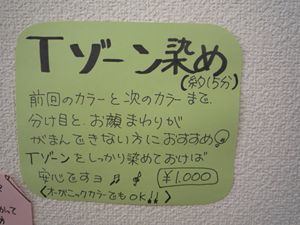 Tゾーン染め
(約15分)
前回のカラーと次のカラーまで、
分け目と、お顔まわりが
がまんできない方におすすめ
Tゾーンをしっかり染めておけば
安心ですヨ♫♪ ¥1,000
〈オーガニックカラーでもOK!!〉
かって